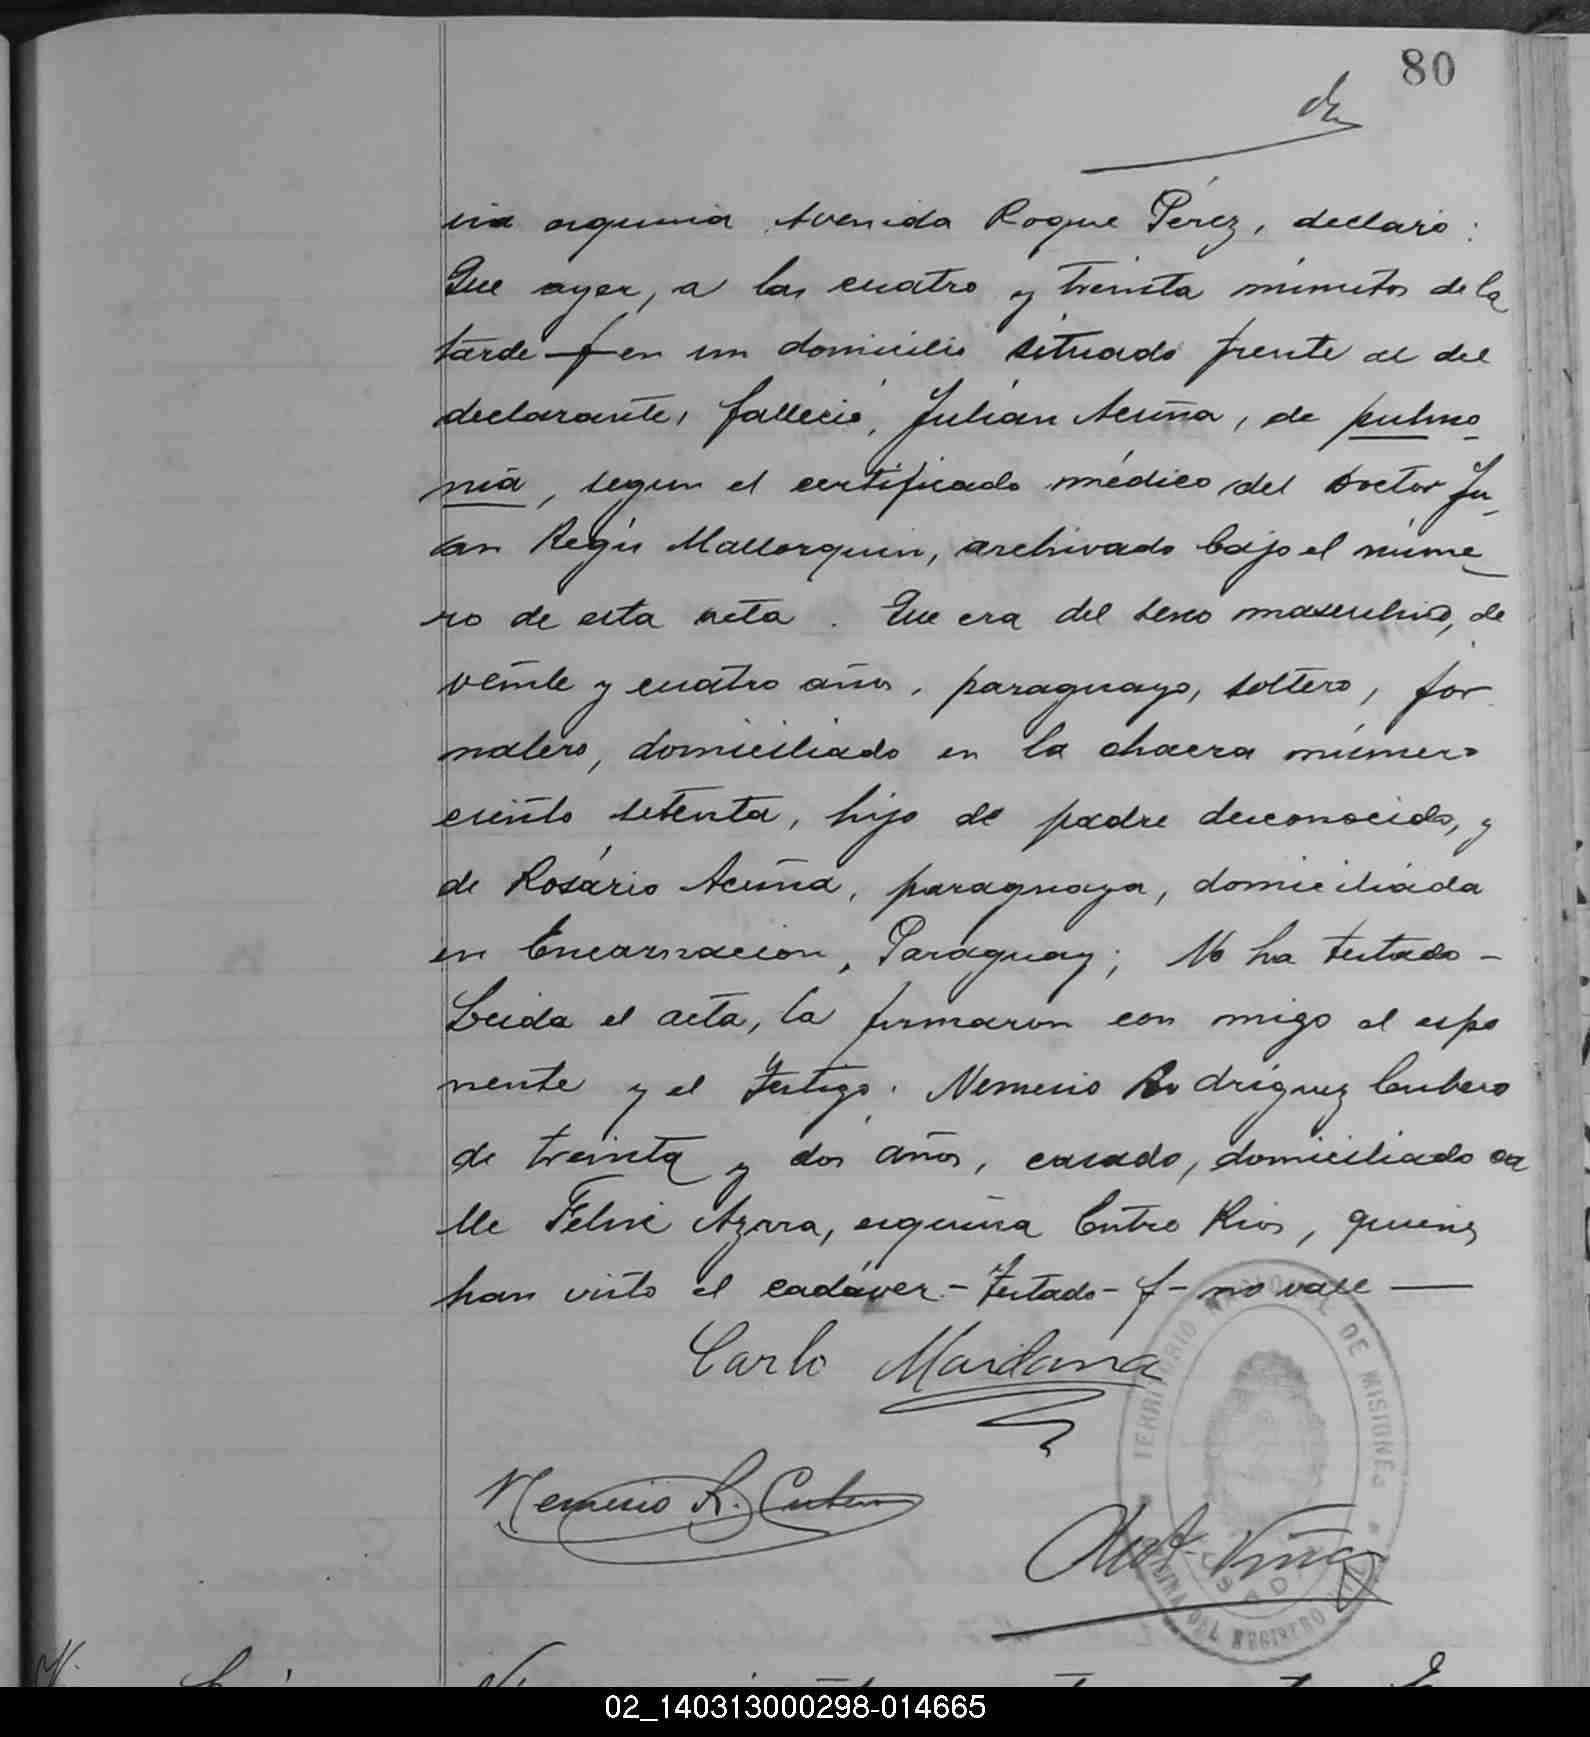 80
esquina Avenida Roque Pérez, declaró:
Que ayer, a las cuatro y treinta minutos de la
tarde f en un domicilio situado frente al del
declarante, falleció, Julián Acuña, de pulmo-
nía, segun el certificado médico del doctor Ju-
an Regis Mallorquin, archivado bajo el núme-
ro de esta acta. Que era del sexo masculino, de
veinte y cuatro años, paraguayo, soltero, jor
nalero, domiciliado en la chacra número
ciento setenta, hijo de padre desconocido, y
de Rosário Acuña, paraguaya, domiciliada
en Encarnacion, Paraguay; No ha testado -
Leida el acta, la firmaron con migo el espo
nente y el testigo. Nemesio Rodríguez Cubero
de treinta y dos años, casado, domiciliado ca
lle Felix Azara, esquina Entre Rios, quienes
han visto el cadáver - Testado - f - no vale —
Carlo
Nemesio R. Cubero
TERRITORIO NACIONAL DE MISIONES
OFICINA DEL REGISTRO CIVIL
POSADAS
02_140313000298-014665